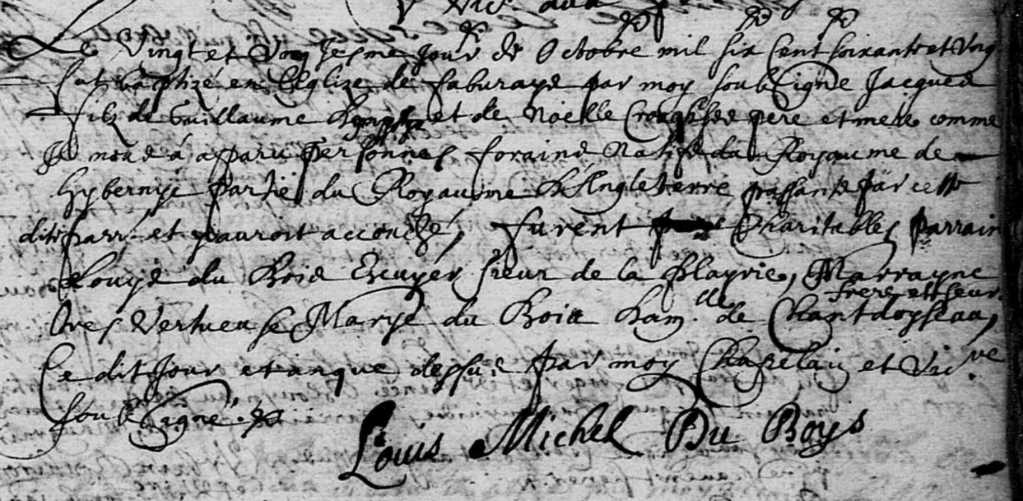 Le Vingt et Vngiesme jour de Octobre mil six cent soixante et Vng
fut baptizé en leglize de par moy soubsigné Jacques
filz de Guillaume et de Noelle pere et mere comme
Il mond à aparu personnes foraine natifz du Royaume de
Hybernye partie du Royaume d'Angleterre passante par cette
ditte parr. et y auroit accouché, furent charitables parrain
Louys du Bois Escuyer sieur de la Playrie, Marrayne
frere et seur
tres vertueuse Marye du Bois dam.lle de Chantdoyseau,
Ce dit jour et an que dessus par moy Chapelain et Vic.re
soubsigné.
Louis Michel Du Boys